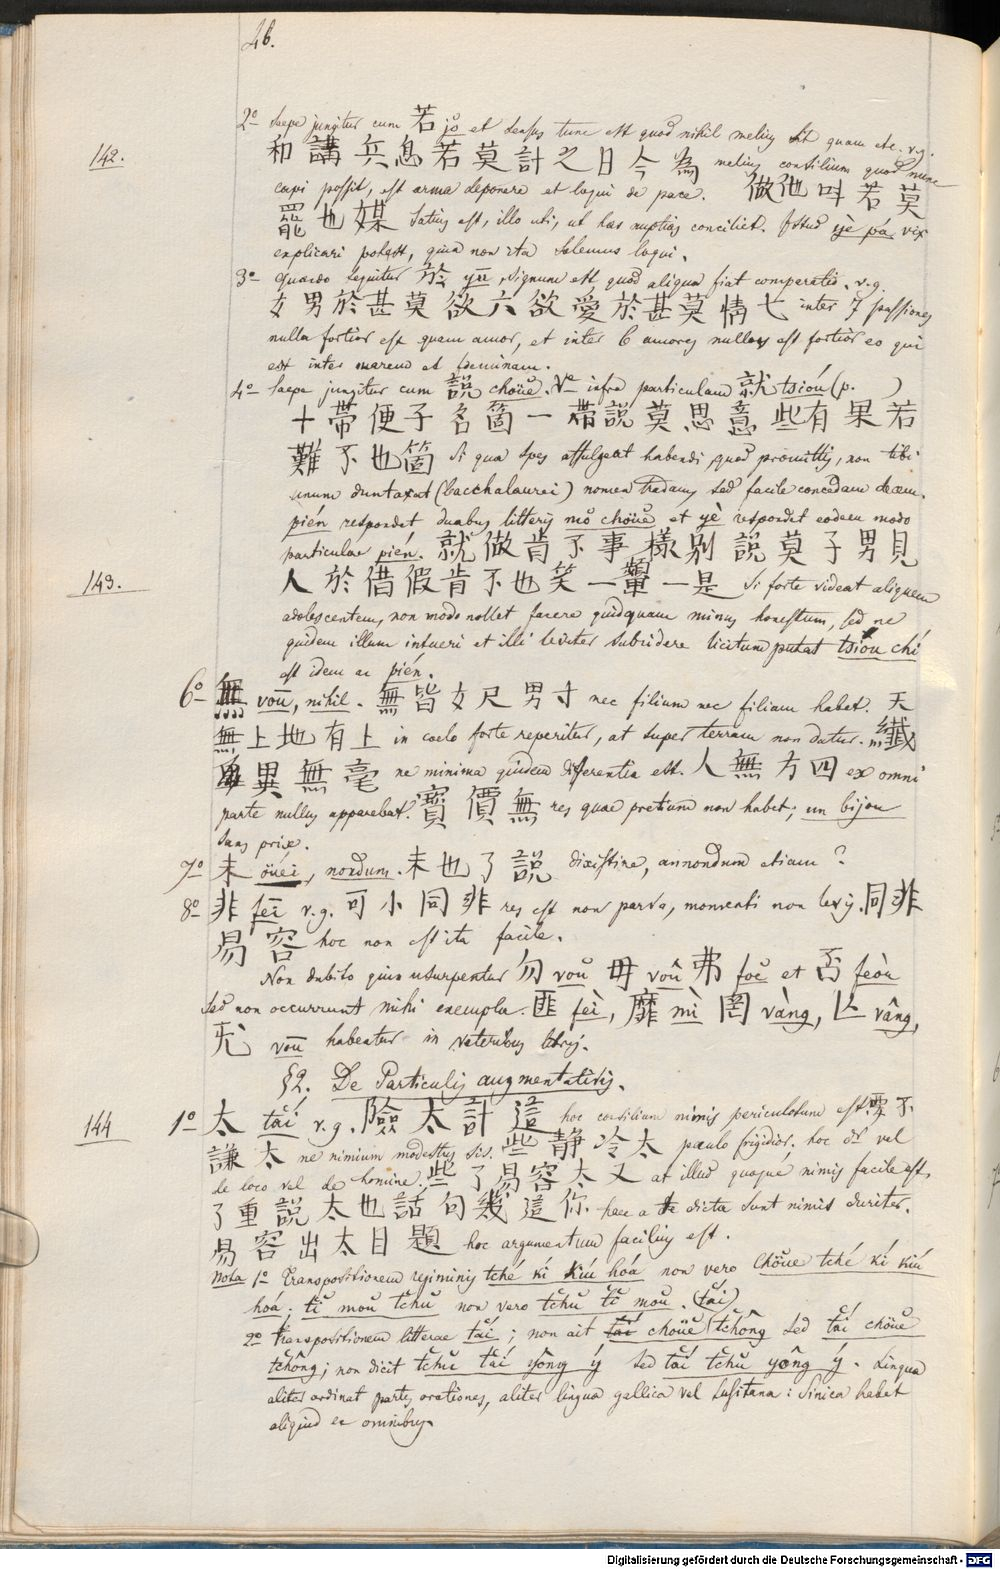 46.
2º Saepe jungitur cum 若 jŏ et sensus tunc est quod nihil melius sit quam etc. v.g.
142.
和 講 兵 息 若 莫 計 之 日 今 為 melius consilium quod nunc
capi possit, est arma deponere et loqui de pace. 做 他 叫 若 莫
罷 也 媒 satius est, illo uti, ut has nuptias conciliet. Istud yè pá vix
explicari potest, quia non ita solemus loqui.
3º Quando sequitur 於 yū, signum est quod aliqua fiat comparatio. v.g.
女 男 於 甚 莫 欲 六 欲 愛 於 甚 莫 情 七 inter 7 passiones
nulla fortior est quam amor, et inter 6 amores nullus est fortior eo qui
est inter marem et foeminam.
4º Saepe jungitur cum 說 chŏuĕ. Vde infra particulam 就 tsióu (p. )
十 帶 便 子 名 箇 一 帶 說 莫 思 意 些 有 果 若
難 不 也 箇 Si qua spes affulgeat habendi quod promittis, non tibi
unum duntaxat (bacchalaurei) nomen tradam sed facile concedam decem.
pién respondet duabus litteris mŏ chŏuĕ et yè respondet eodem modo
particulae pién. 就 做 肯 不 事 樣 別 說 莫 子 男 見
143.
人 於 借 假 肯 不 也 笑 一 顰 一 是 Si forte videat aliquem
adolescentem, non modo nollet facere quidquam minus honestum, sed ne
quidem illum intueri et illi leviter subridere licitum putat tsióu chí
est idem ac pién.
6º 無 voū, nihil. 無 皆 女 尺 男 寸 nec filium nec filiam habet. 天
無 上 地 有 上 in coelo forte reperitur, at super terram non datur. 纖
異 無 毫 ne minima quidem differentia est. 人 無 方 四 ex omni
parte nullus apparebat. 寶 價 無 res quae pretium non habet; un bijou
sans prix.
7º 未 ouéi, nondum. 未 也 了 說 dixistine, annondum etiam?
8º 非 fēi v.g. 可 小 同 非 res est non parva, momenti non levis. 同 非
易 容 hoc non est ita facile.
Non dubito quin usurpentur 勿 voŭ 毋 voû 弗 foĕ et 否 feòu
sed non occurrunt mihi exempla. 匪 fèi, 靡 mì 罔 vàng, 亡 vâng,
无 voū habentur in veteribus libris.
§2. De Particulis augmentativis.
144
1º 太 tái v.g. 險 太 計 這 hoc consilium nimis periculosum est. 要 不
謙 太 ne nimium modestus sis. 些 靜 冷 太 paulo frigidior. hoc dr vel
de loco vel de homine. 些 了 易 容 太 又 at illud quoque nimis facile est.
了 重 說 太 也 話 句 幾 這 你 haec a te dicta sunt nimis duriter.
易 容 出 太 目 題 hoc argumentum facilius est.
Nota 1º Transpositionem regiminis tché kì kiú hoá non vero chŏuĕ tché kì kiú
hoá; tî moŭ tchŭ non vero tchŭ tî moŭ. (tái)
2º transpositionem litterae tái; non ait chŏuĕ tchóng sed tái chŏuĕ
tchóng; non dicit tchŭ tái yông ý sed tái tchŭ yông ý. Lingua
aliter ordinat partes orationes, aliter lingua gallica vel Lusitana: Sinica habet
aliquid ex omnibus.
Digitalisierung gefördert durch die Deutsche Forschungsgemeinschaft - DFG